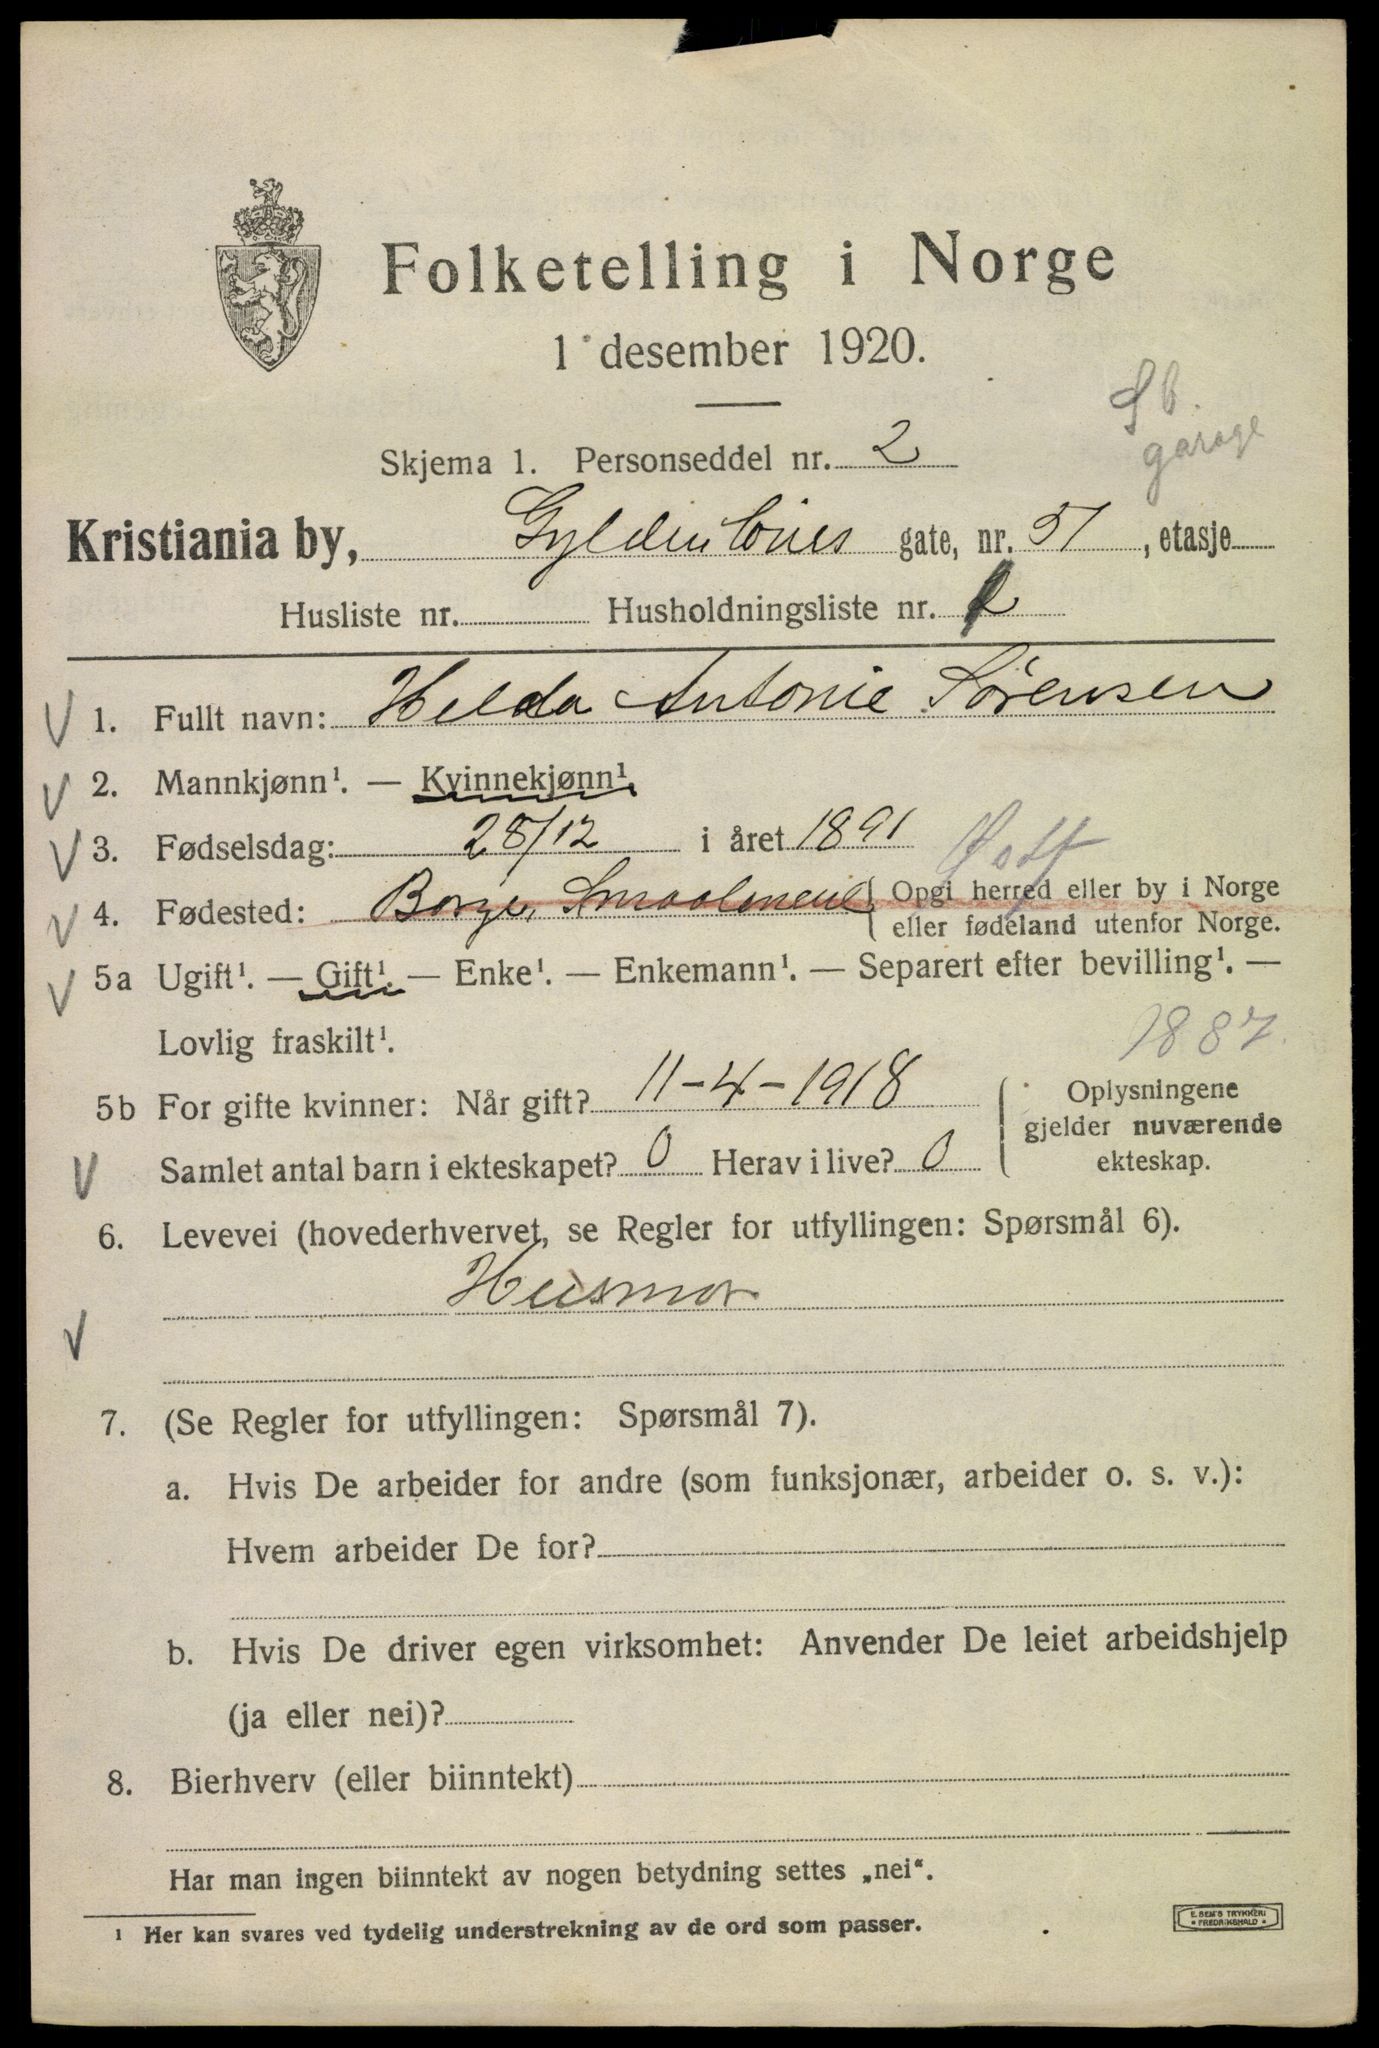 Folketelling i Norge
1 desember 1920.
Sb.
garage
Skjema 1. Personseddel nr. 2
Kristiania by, Gyldenløves gate, nr. 51, etasje
Husliste nr. Husholdningsliste nr. 2
1. Fullt navn: Helda Antonie Sørensen
2. Mannkjønn¹. — Kvinnekjønn¹.
3. Fødselsdag: 28/12 i året 1891
Østf
4. Fødested: Borge, Smaalenene { Opgi herred eller by i Norge
eller fødeland utenfor Norge.
5a Ugift¹. — Gift¹. — Enke¹. — Enkemann¹. — Separert efter bevilling¹. —
Lovlig fraskilt¹.
1887.
5b For gifte kvinner: Når gift? 11-4-1918
Samlet antal barn i ekteskapet? 0 Herav i live? 0
Oplysningene
gjelder nuværende
ekteskap.
6. Levevei (hovederhvervet, se Regler for utfyllingen: Spørsmål 6).
Husmor
7. (Se Regler for utfyllingen: Spørsmål 7).
a. Hvis De arbeider for andre (som funksjonær, arbeider o. s. v.):
Hvem arbeider De for?
b. Hvis De driver egen virksomhet: Anvender De leiet arbeidshjelp
(ja eller nei)?
8. Bierhverv (eller biinntekt)
Har man ingen biinntekt av nogen betydning settes „nei“.
¹ Her kan svares ved tydelig understrekning av de ord som passer.
E. SEM'S TRYKKERI
FREDRIKSHALD